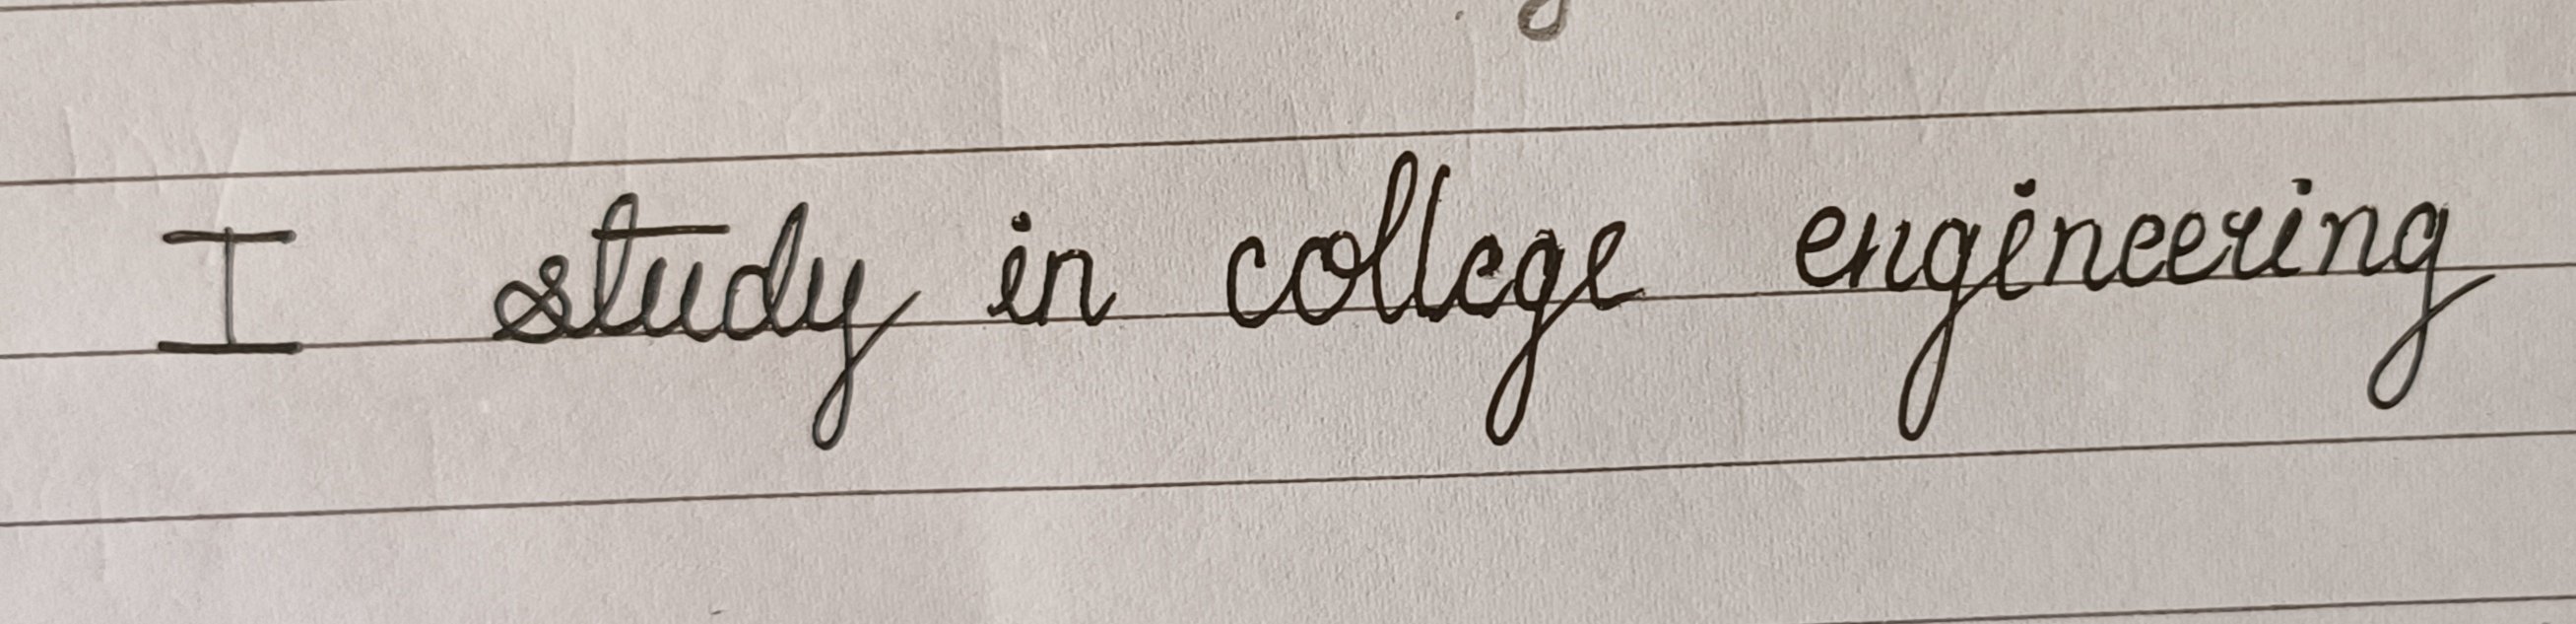 I study in college engineering